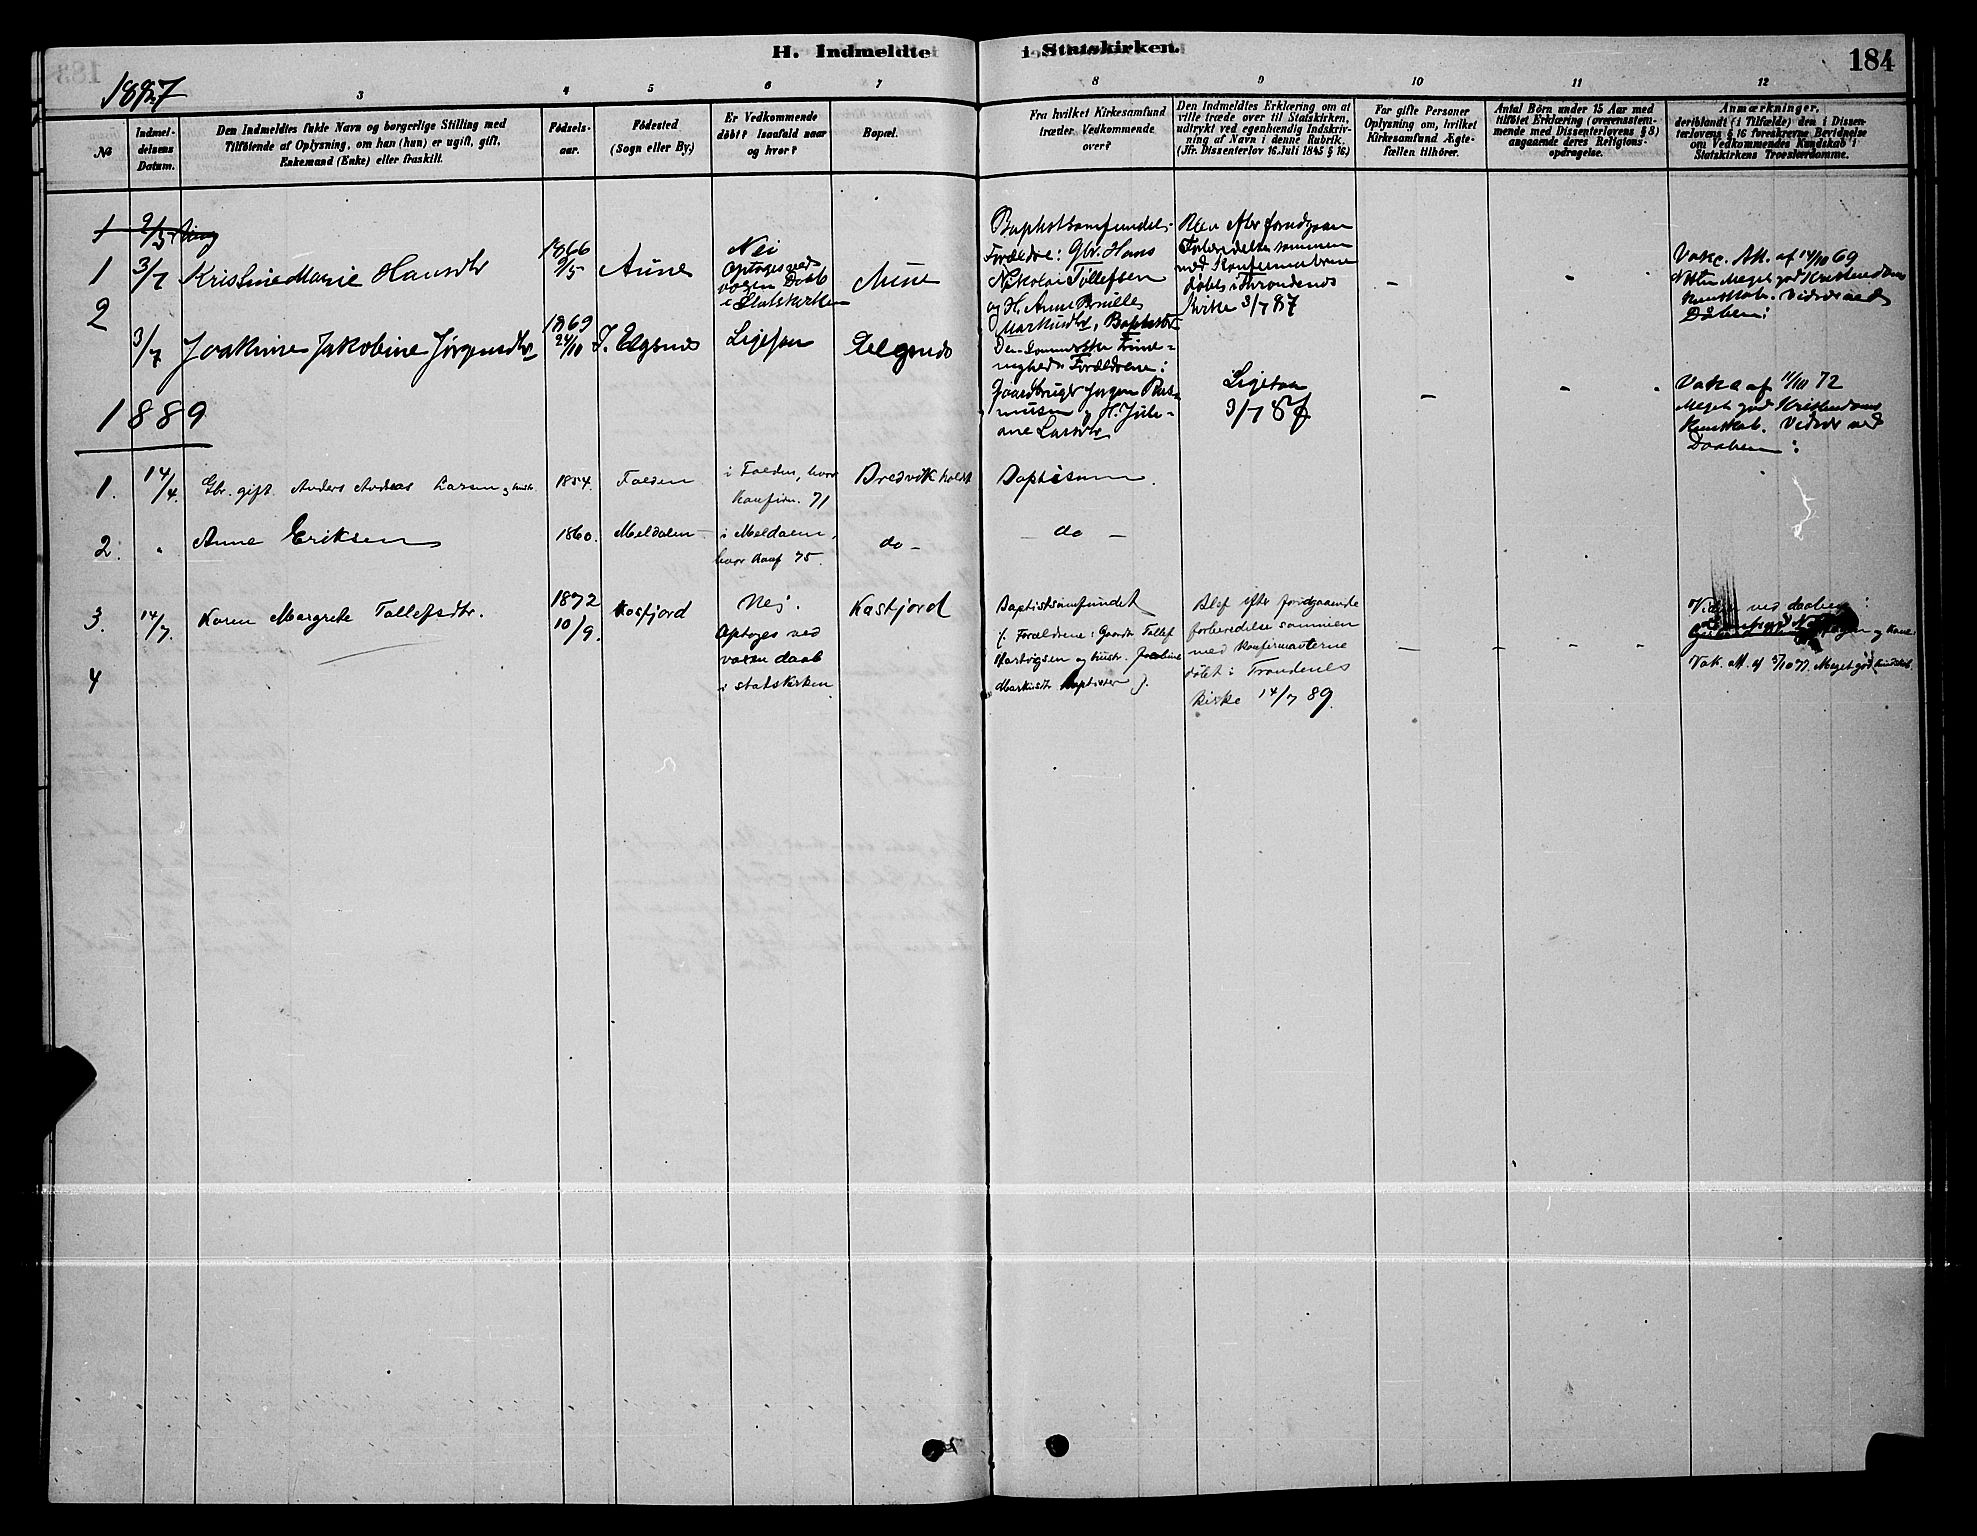 H. Indmeldte i Statskirken.
184
1887
3 4 5 6 7 8 9 10 11 12
№
Indmel-
delsens
Datum.
Den Indmeldtes fulde Navn og borgerlige Stilling med
Tilföiende af Oplysning, om han (hun) er ugift, gift,
Enkemand (Enke) eller fraskilt.
Födsels-
aar.
Födested
(Sogn eller By.)
Er Vedkommende
döbt? Isaafald naar
og hvor?
Bopæl.
Fra hvilket Kirkesamfund
træder Vedkommende
over?
Den Indmeldtes Erklæring om at
ville træde over til Statskirken,
udtrykt ved egenhændig Indskriv-
ning af Navn i denne Rubrik.
(Jfr. Dissenterlov 16 Juli 1845 § 16)
For gifte Personer
Oplysning om, hvilket
Kirkesamfund Ægte-
fællen tilhörer.
Antal Börn under 15 Aar med
tilföiet Erklæring (overensstem-
mende med Dissenterlovens § 8)
angaaende deres Religions-
opdragelse.
Anmærkninger,
deriblandt (i Tilfælde) den i Dissen-
terlovens § 16 foreskrevne Bevidnelse
om Vedkommendes Kundskab i
Statskirkens Troeslærdomme.
1
1 3/7 Kristine Marie Hansdtr
1866
9/5
Aune
Nei
Optoges ved
voxen Daab
i Statskirken
Aune
Baptistsamfundet.
Forældre: Gbr. Hans
Nikolai Tollefsen
og H. Anne
Markusdtr, Baptister
Blev efter foregaaen
Forberedelse sammen
med Konfirmanterne
döbt i Throndenes
Kirke 3/7 87
-
-
Vakc. Att. af 14/10 69
Meget god Kristendoms
Kundskab. Vidner ved
Daaben:
2
3/7 Joakime Jakobine Jörgensdtr
1869
24/10
Elgsnes
Ligesaa
Elgsnes
Forældrene:
Gaardbruger Jörgen Ras-
musen og H. Juli-
ane Larsdtr
Ligesaa
3/7 87
-
-
Vakc af 11/10 72
Meget god Kristendoms
Kundskab. Vidner ved
Daaben:
1889
1. 14/4. Gbr. gift Anders Andreas Larsen og hustr.
1854. Folden
i Folden, hvor
Konfirm. 71
Bredvik
Baptismen.
2. " Anne Eriksen
1860. Meldalen
i Meldalen,
hvor Konf 75.
do -
- do -
3. 14/7. Karen Margrete Tollefsdtr.
1872
10/9.
Kasfjord
Nej.
Optoges ved
voxen daab
i statskirken
Kasfjord
Baptistsamfundet
(. Forældrene: Gaardbr. Tollef
Hartvigsen og hustr. Jacobine
Markusdtr Baptister ).
Blef efter foregaaende
forberedelse sammen
med Konfirmanterne
döbt i Trondenes
Kirke 14/7 89.
-
-
ved daaben:
og Kone
Vak. att. af 77. Meget god kundskab.
4